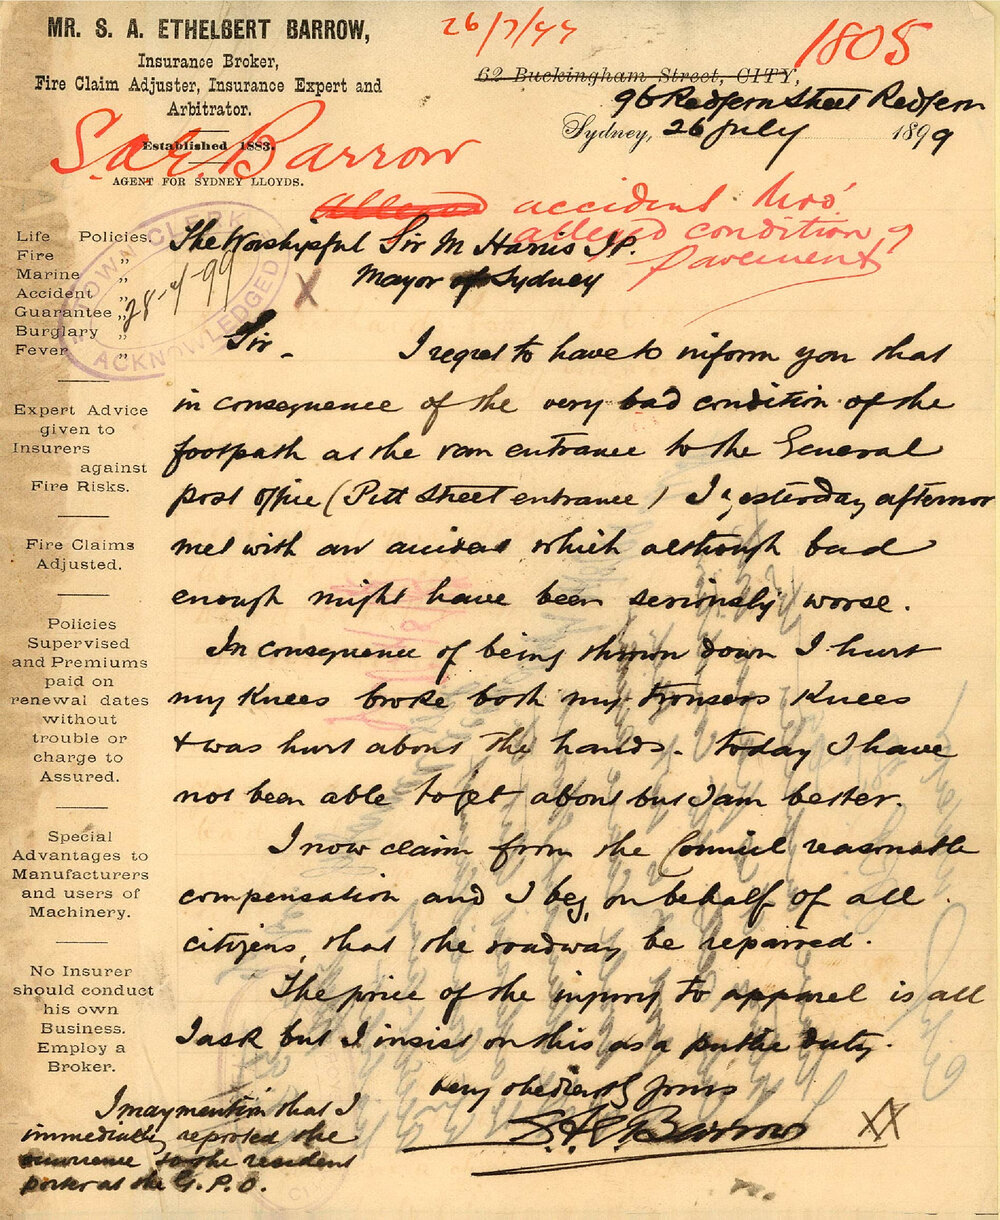 MR. S. A. ETHELBERT BARROW,
Insurance Broker,
Fire Claim Adjuster, Insurance Expert and
Arbitrator.
Established 1883.
AGENT FOR SYDNEY LLOYDS.
26/7/99
1805
62 Buckingham Street, CITY,
96 Redfern Street Redfern
Sydney, 26 July 1899
S.A.E. Barrow
alleged accident thro'
alleged condition of
pavement
TOWN CLERK
28-7-99
ACKNOWLEDGED
Life Policies.
Fire "
Marine "
Accident "
Guarantee "
Burglary "
Fever "
Expert Advice
given to
Insurers
against
Fire Risks.
Fire Claims
Adjusted.
Policies
Supervised
and Premiums
paid on
renewal dates
without
trouble or
charge to
Assured.
Special
Advantages to
Manufacturers
and users of
Machinery.
No Insurer
should conduct
his own
Business.
Employ a
Broker.
The Worshipful Sir M Harris J.P.
Mayor of Sydney
X
Sir - I regret to have to inform you that
in consequence of the very bad condition of the
footpath at the van entrance to the General
post office (Pitt Street entrance) I yesterday afternoon
met with an accident which although bad
enough might have been seriously worse.
In consequence of being thrown down I hurt
my knees broke both my trousers knees
& was hurt about the hands. Today I have
not been able to get about but I am better.
I now claim from the Council reasonable
compensation and I beg, on behalf of all
citizens, that the roadway be repaired.
The price of the injury to apparel is all
I ask but I insist on this as a public duty.
Very obediently yours
S A E Barrow
XX
I may mention that I
immediately reported the
occurrence to the resident
porter at the G.P.O.